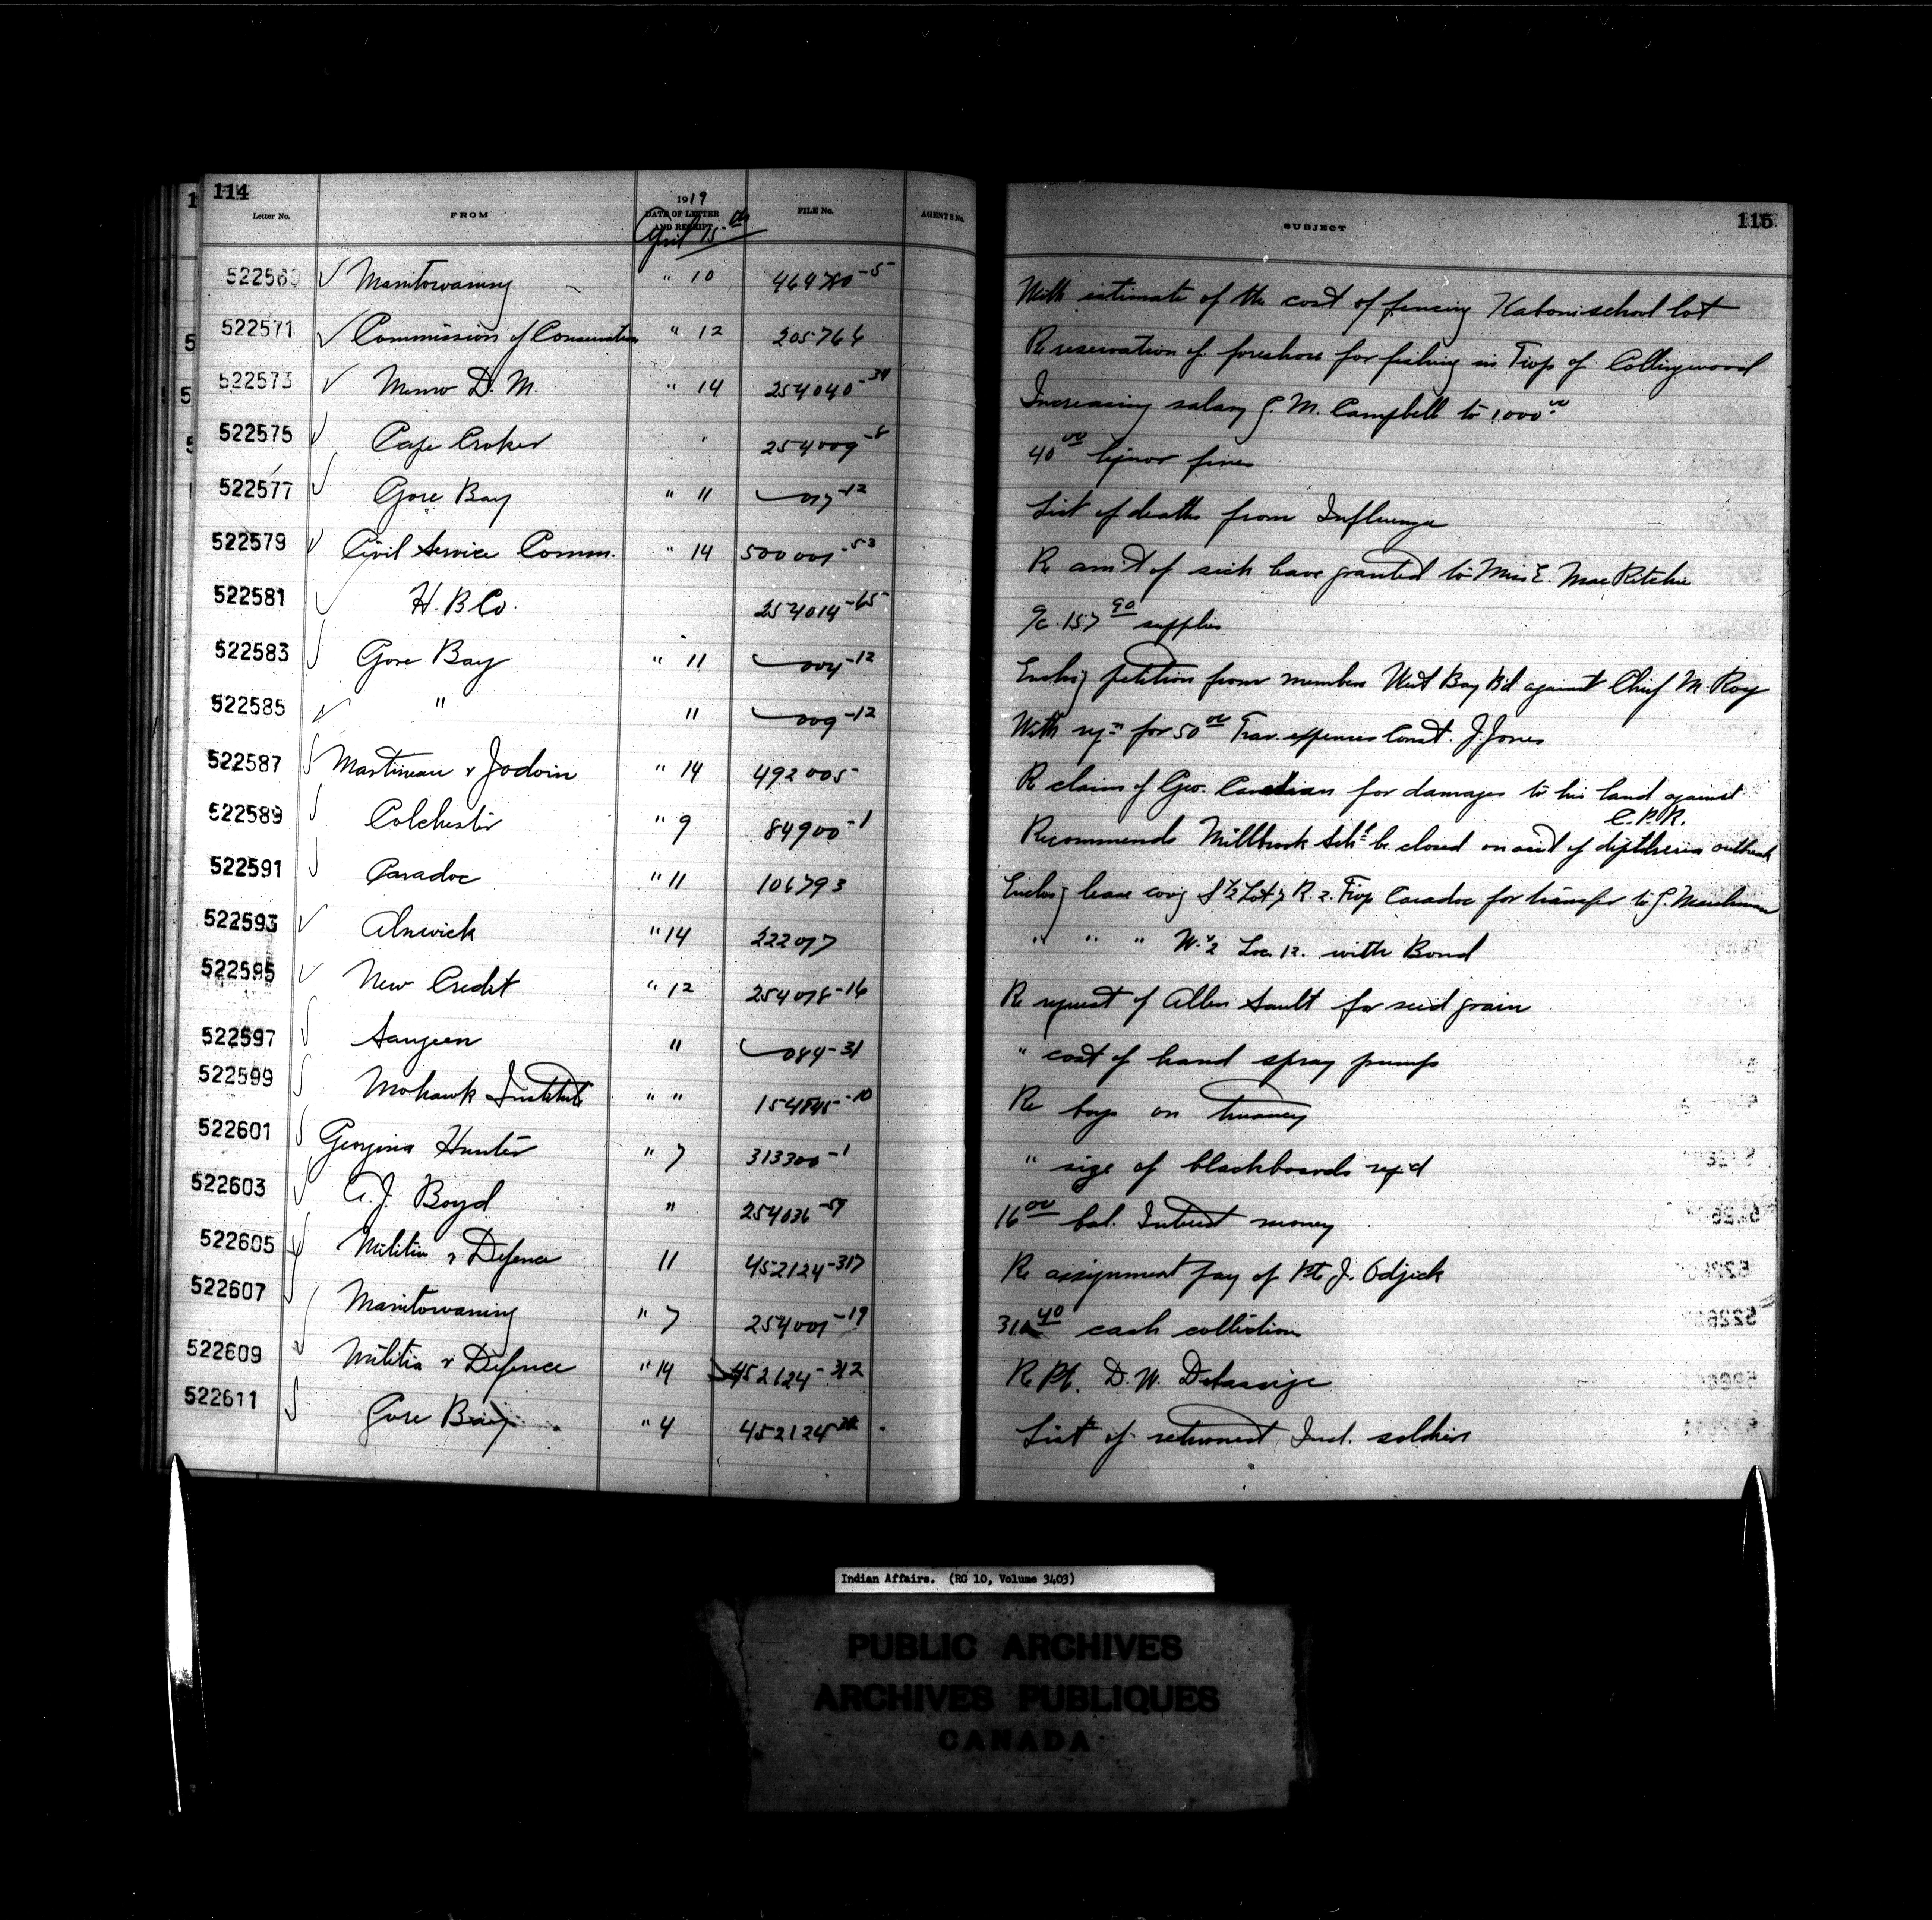 114
Letter No. FROM 1919 DATE OF LETTER AND RECEIPT FILE No. AGENTS No. SUBJECT 115
April 15th
✓ Manitowaning " 10 464780-5 With estimate of the cost of fencing Kaboni school lot
522571 ✓ Commission of Conservation " 12 205764 Re reservation of foreshore for fishing in Twp of Collingwood
522573 ✓ Memo D. M. " 14 254040-34 Increasing salary J. M. Campbell to 1000.00
522575 ✓ Cape Croker " 254009-8 40.00 liquor fines
522577 ✓ Gore Bay " 11 017-12 List of deaths from Influenza
522579 ✓ Civil Service Comm. " 14 500001-53 Re am't of sick leave granted to Miss E. MacRitchie
522581 ✓ H. B Co. 254014-65 a/c 157.90 supplies
522583 ✓ Gore Bay " 11 004-12 Enclos'g petition from members West Bay B'd against Chief M. Roy
522585 ✓ " " 009-12 With for 50.00 Trav. expenses Const. J. Jones
522587 ✓ Martineau & Jodoin " 14 492005 Re claim of Geo. for damages to his land against
C.P.R.
522589 ✓ Colchester " 9 84900-1 Recommends Millbrook Sch'l be closed on acc't of diphtheria outbreak
522591 ✓ Caradoc " 11 106793 Enclos'g lease cov'g S ½ Lot 7 R. 2. Twp Caradoc for transfer to J.
522593 ✓ Alnwick " 14 222077 " " " W. ½ Loc. 12. with Bond
522595 ✓ New Credit " 12 254078-16 Re request of Allen Sault for seed grain
522597 ✓ Saugeen " 084-31 " cost of hand spray pumps
522599 ✓ Mohawk Institute " " 154845-10 Re boys on truancy
522601 ✓ Georgina Hunter " 7 313300-1 " size of blackboards req'd
522603 ✓ A. J. Boyd " 254036-59 16.00 bal. Interest money
522605 ✓ Militia & Defence 11 452124-317 Re assignment pay of Pte J. Odjick
522607 ✓ Manitowaning " 7 254001-19 cash collection
522609 ✓ Militia & Defence " 14 452124-312 Re Pt. D. W. Delaronge
522611 ✓ Gore Bay " 4 452124 List of returned Ind. soldiers
Indian Affairs. (RG 10, Volume 3403)
PUBLIC ARCHIVES
ARCHIVES PUBLIQUES
CANADA